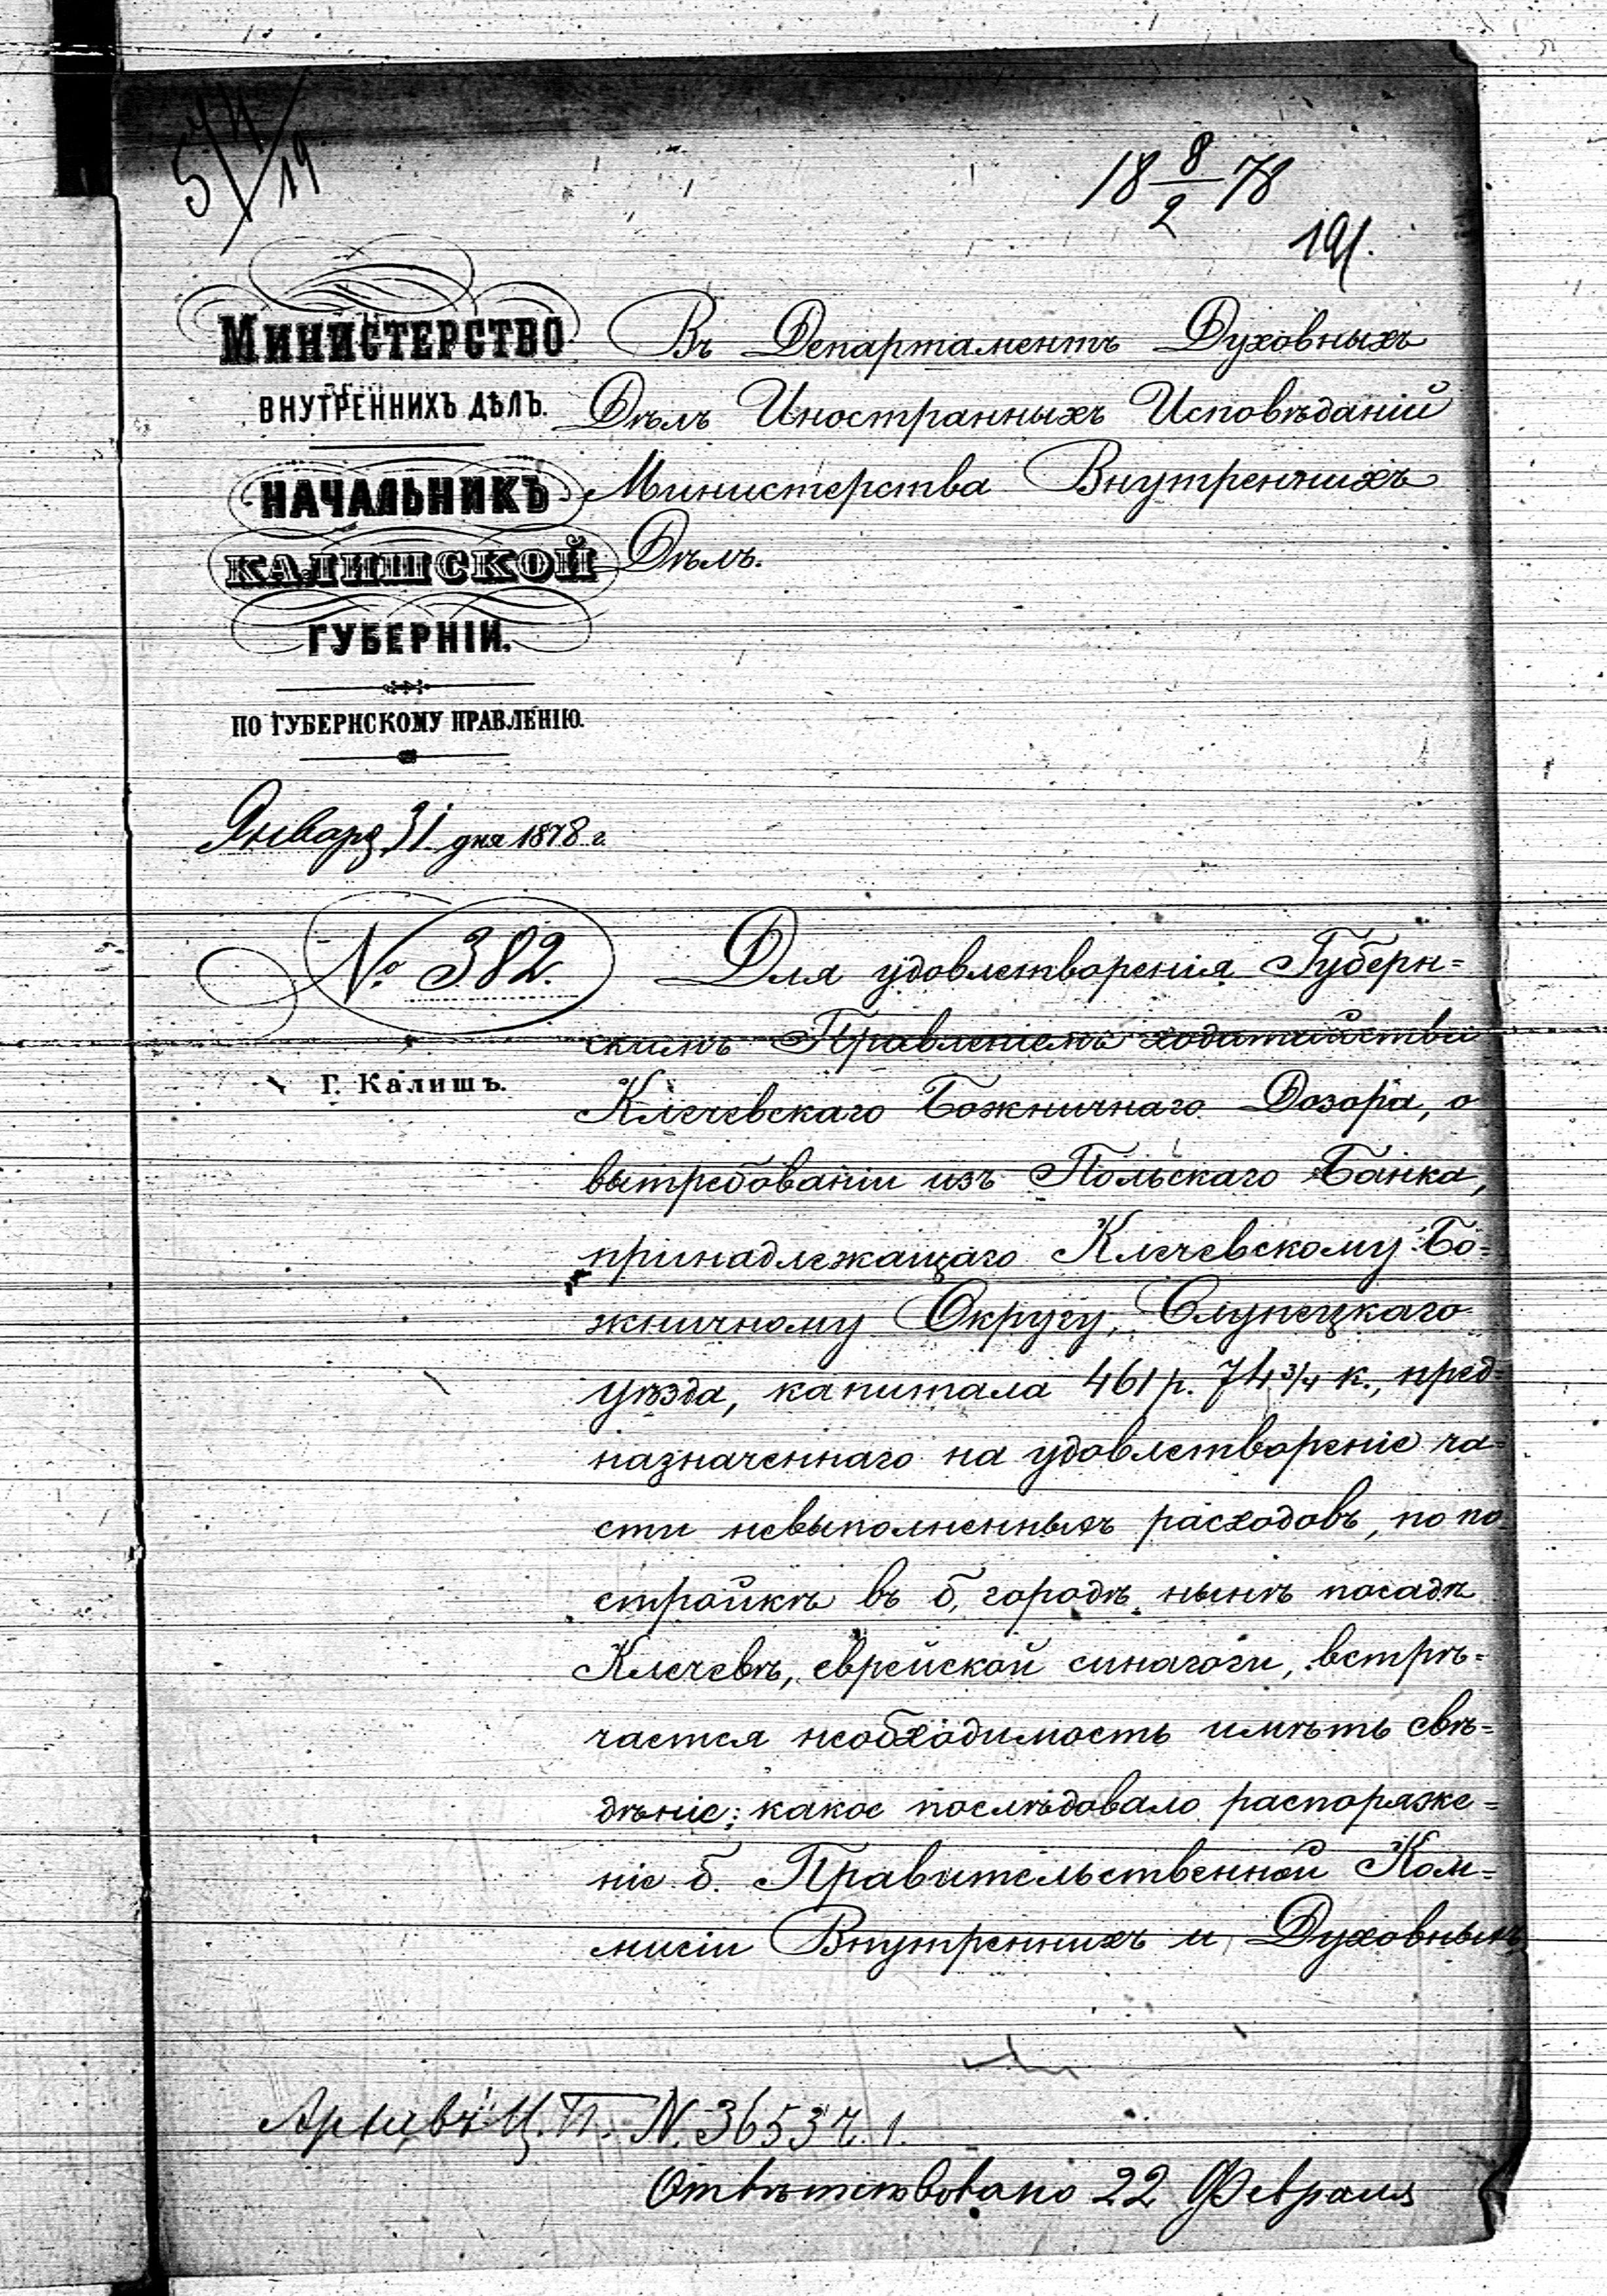 544/19
18 8/2 78
191.
МИНИСТЕРСТВО
ВНУТРЕННИХЪ ДѢЛЪ.
НАЧАЛЬНИКЪ
КАЛИШСКОЙ
ГУБЕРНІИ.
ПО ГУБЕРНСКОМУ ПРАВЛЕНІЮ.
Января 31 дня 1878 г.
№ 382.
Г. Калишъ.
Въ Департаментъ Духовныхъ
Дѣлъ Иностранныхъ Исповѣданій
Министерства Внутреннихъ
Дѣлъ.
Для удовлетворенія Губерн=
скимъ Правленіемъ ходатайства
Клечевскаго Божничнаго Дозора, о
вытребованіи изъ Польскаго Банка,
принадлежащаго Клечевскому Бо=
жничному Округу, Слупецкаго
уѣзда, капитала 461 р. 74 3/4 к., пред=
назначеннаго на удовлетвореніе ча=
сти невыполненныхъ расходовъ, по по=
стройкѣ въ б. городѣ, нынѣ посадѣ
Клечевѣ, еврейской синагоги, встрѣ=
чается необходимость имѣть свѣ=
дѣніе: какое послѣдовало распоряже=
ніе б. Правительственной Ком=
мисіи Внутреннихъ и Духовныхъ
Архивъ Ц. П. N. 3653 ч. 1.
Отвѣтствовано 22 Февраля